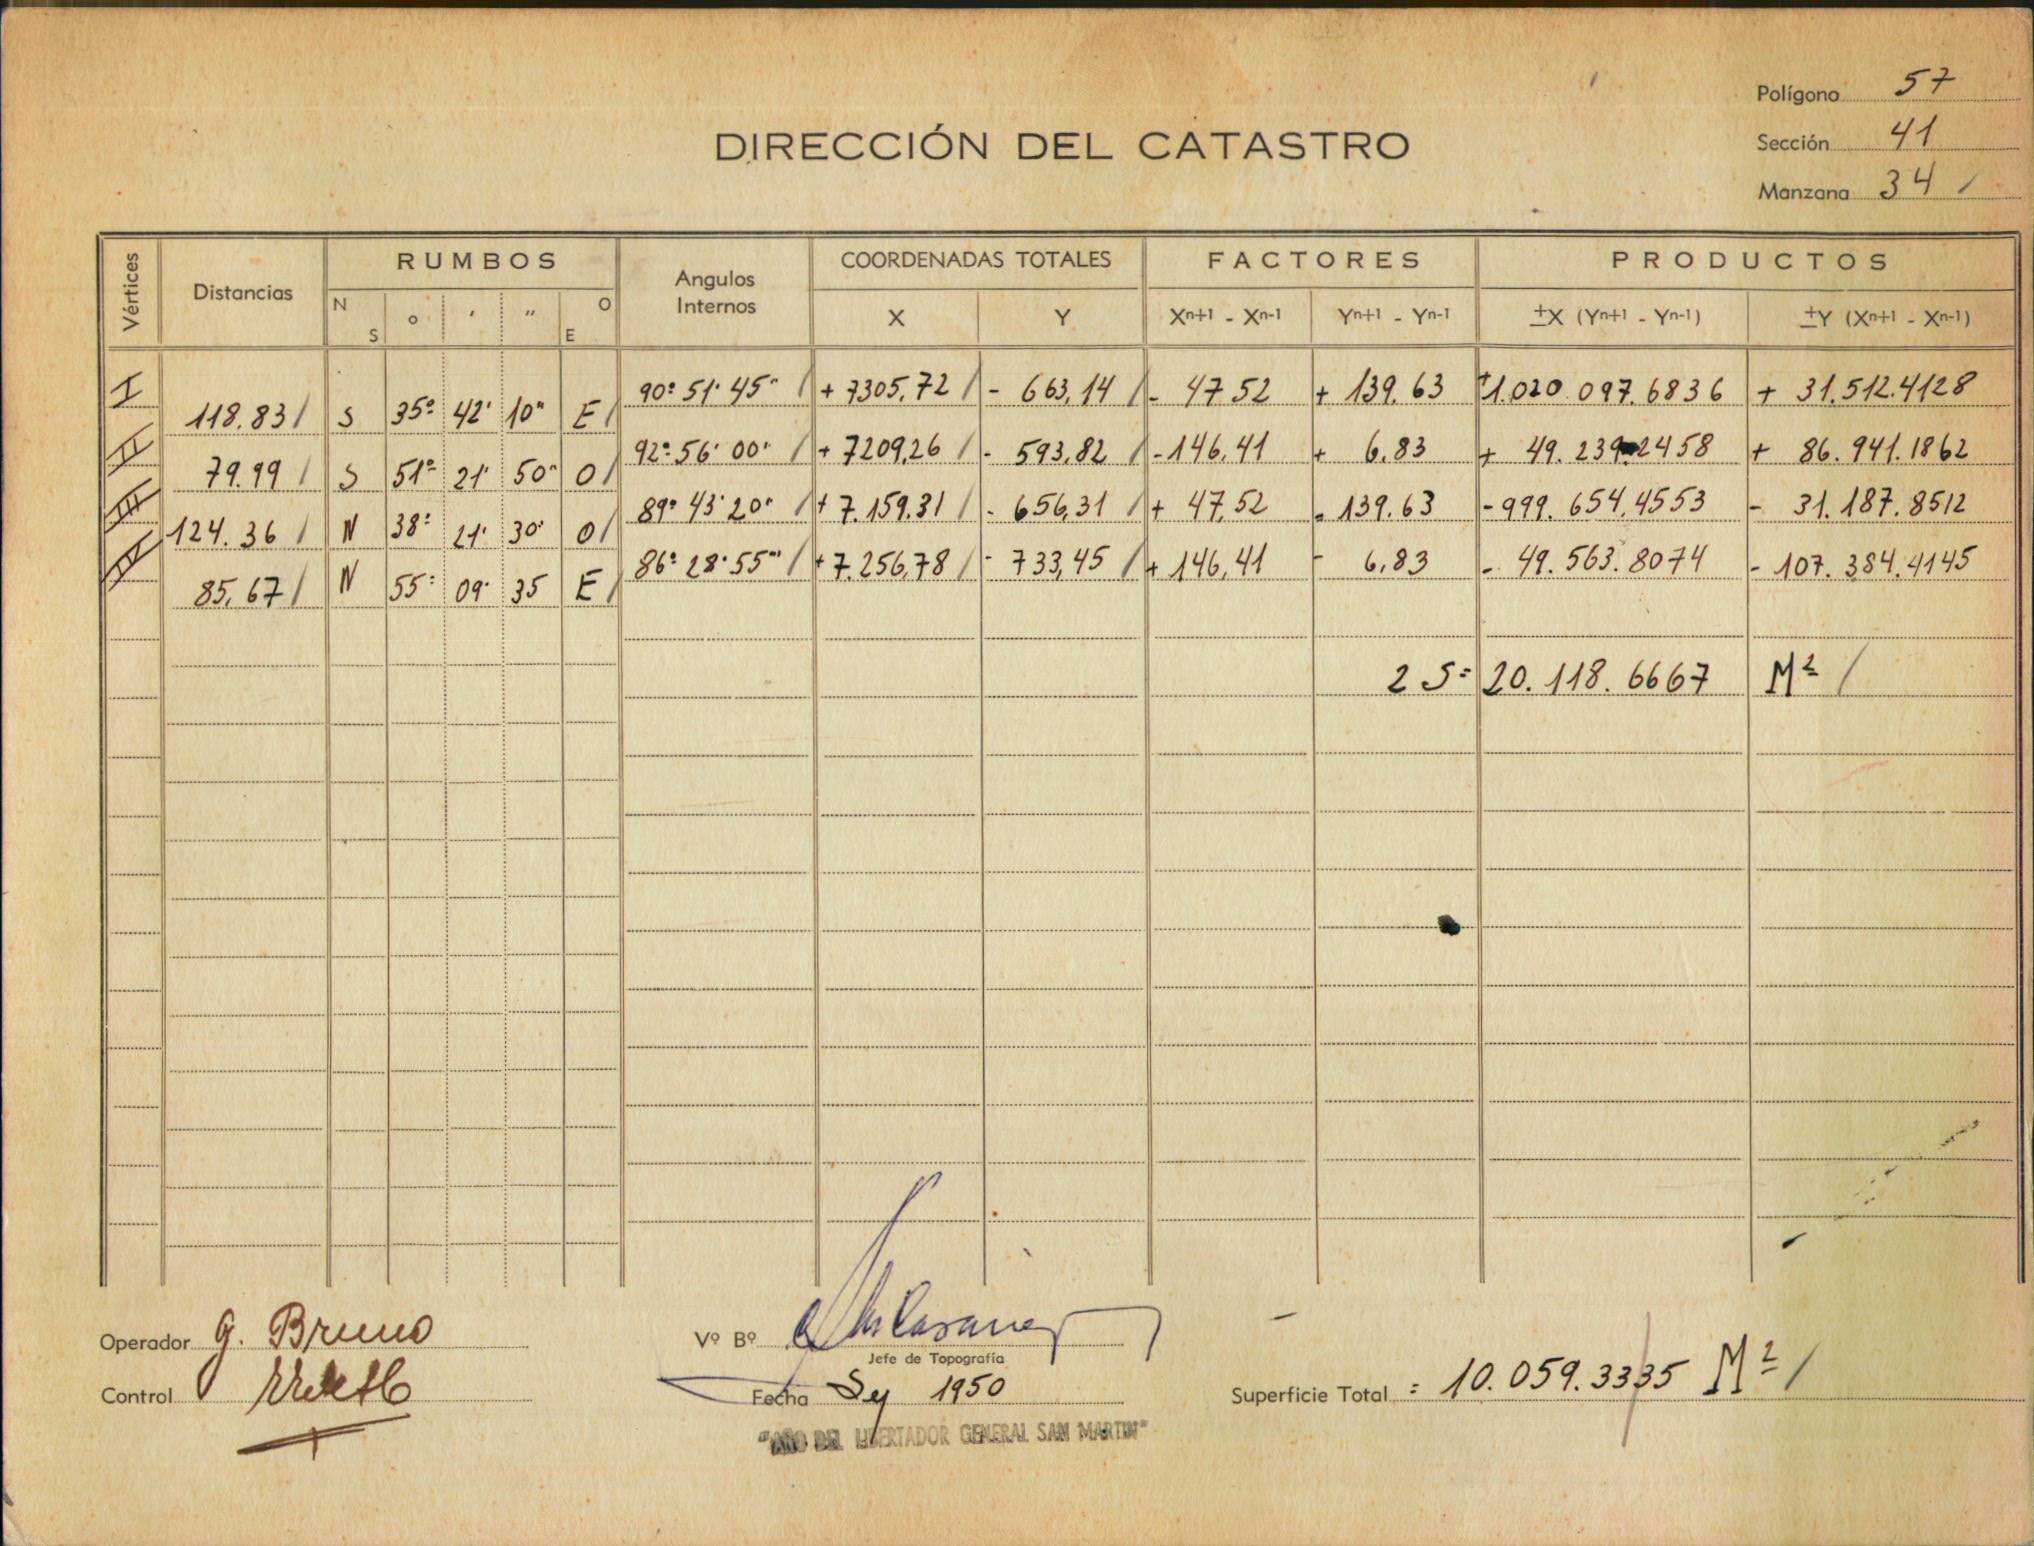 Polígono 57
DIRECCIÓN DEL CATASTRO
Sección 41
Manzana 34 /
Vértices Distancias RUMBOS Angulos Internos COORDENADAS TOTALES FACTORES PRODUCTOS
N S ° ' " O E X Y Xn+1 - Xn-1 Yn+1 - Yn-1 ±X (Yn+1 - Yn-1) ±Y (Xn+1 - Xn-1)
I 90° 51' 45" / + 7305,72 / - 663,14 / - 47 52 + 139,63 +1.020 097.6836 + 31.512.4128
118.83 / S 35° 42' 10" E /
II 92° 56' 00" / + 7209,26 / - 593,82 / - 146,41 + 6,83 + 49.239.2458 + 86.941.1862
79.99 / S 51° 21' 50" O /
III 89° 43' 20" / + 7.159.31 / - 656,31 / + 47,52 - 139.63 - 999.654,4553 - 31.187.8512
124.36 / N 38° 21' 30" O /
IV 86° 28' 55" / + 7.256,78 / - 733,45 / + 146,41 - 6,83 - 49.563.8074 - 107.384.4145
85,67 / N 55° 09' 35 E /
2 S = 20.118.6667 M² /
Operador G. Bruno
Vº Bº
Jefe de Topografía
Control
Fecha 1950
Superficie Total = 10.059.3335 M² /
"AÑO DEL LIBERTADOR GENERAL SAN MARTIN"